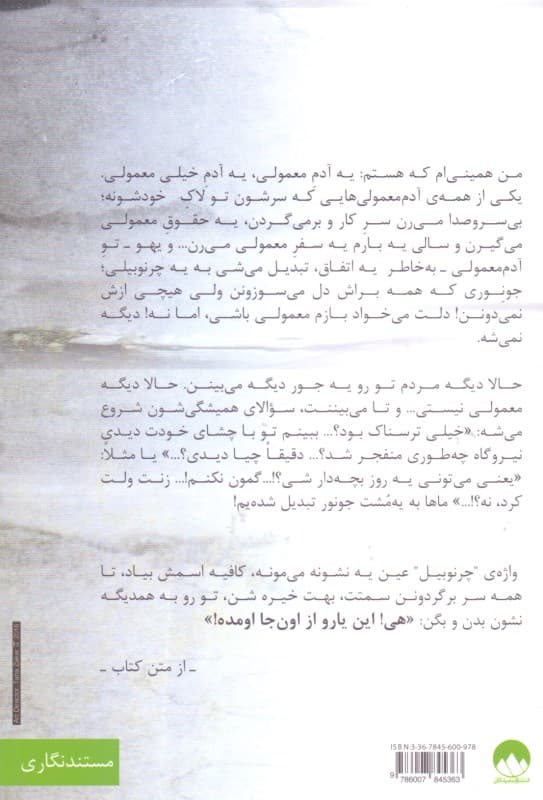 من همینی‌ام که هستم: یه آدمِ معمولی، یه آدمِ خیلی معمولی.
یکی از همه‌ی آدم‌معمولی‌هایی که سرشون تو لاکِ خودشونه؛
بی‌سروصدا می‌رن سرِ کار و برمی‌گردن، یه حقوقِ معمولی
می‌گیرن و سالی یه بارم یه سفرِ معمولی می‌رن... و یهو ـ تو
آدم‌معمولی ـ به‌خاطر یه اتفاق، تبدیل می‌شی به یه چرنوبیلی؛
جونوری که همه براش دل می‌سوزونن ولی هیچی ازش
نمی‌دونن! دلت می‌خواد بازم معمولی باشی، اما نه! دیگه
نمی‌شه.
حالا دیگه مردم تو رو یه جور دیگه می‌بینن. حالا دیگه
معمولی نیستی... و تا می‌بیننت، سؤالای همیشگی‌شون شروع
می‌شه: «خیلی ترسناک بود؟... ببینم تو با چشای خودت دیدی
نیروگاه چه‌طوری منفجر شد؟... دقیقاً چیا دیدی؟...» یا مثلاً:
«یعنی می‌تونی یه روز بچه‌دار شی؟!...گمون نکنم!... زنت ولت
کرد، نه؟!...» ماها به یه‌مُشت جونور تبدیل شده‌یم!
واژه‌ی "چرنوبیل" عین یه نشونه می‌مونه، کافیه اسمش بیاد، تا
همه سر برگردونن سمتت، بهت خیره شن، تو رو به همدیگه
نشون بدن و بگن: «هی! این یارو از اون‌جا اومده!»
ـ از متن کتاب ـ
ISBN:3-36-7845-600-978
9 786007 845363
مستندنگاری